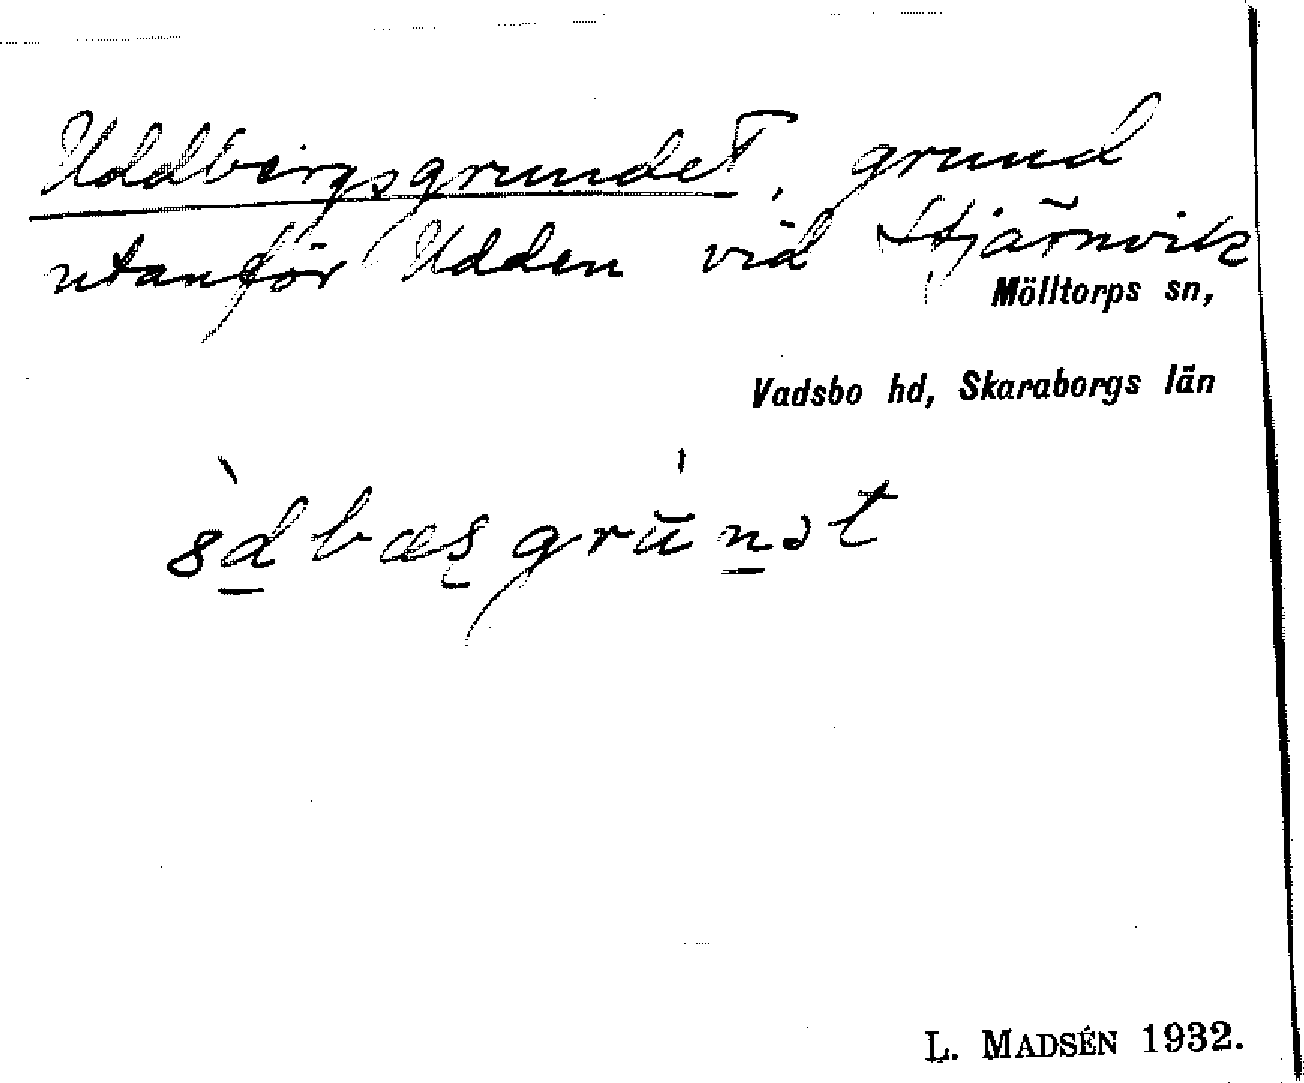 Uddbergsgrundet, grund
utanför Udden vid Stjärnvik
Mölltorps sn,
Vadsbo hd, Skaraborgs län
L. MADSÉN 1932.